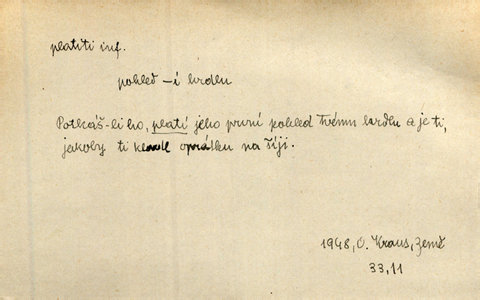 platiti inf.
pohled –í hrdlu
Potkáš-li ho, platí jeho první pohled tvému hrdlu a je ti,
jakoby ti kladl oprátku na šíji.
1948, O. Kraus, Země
33, 11